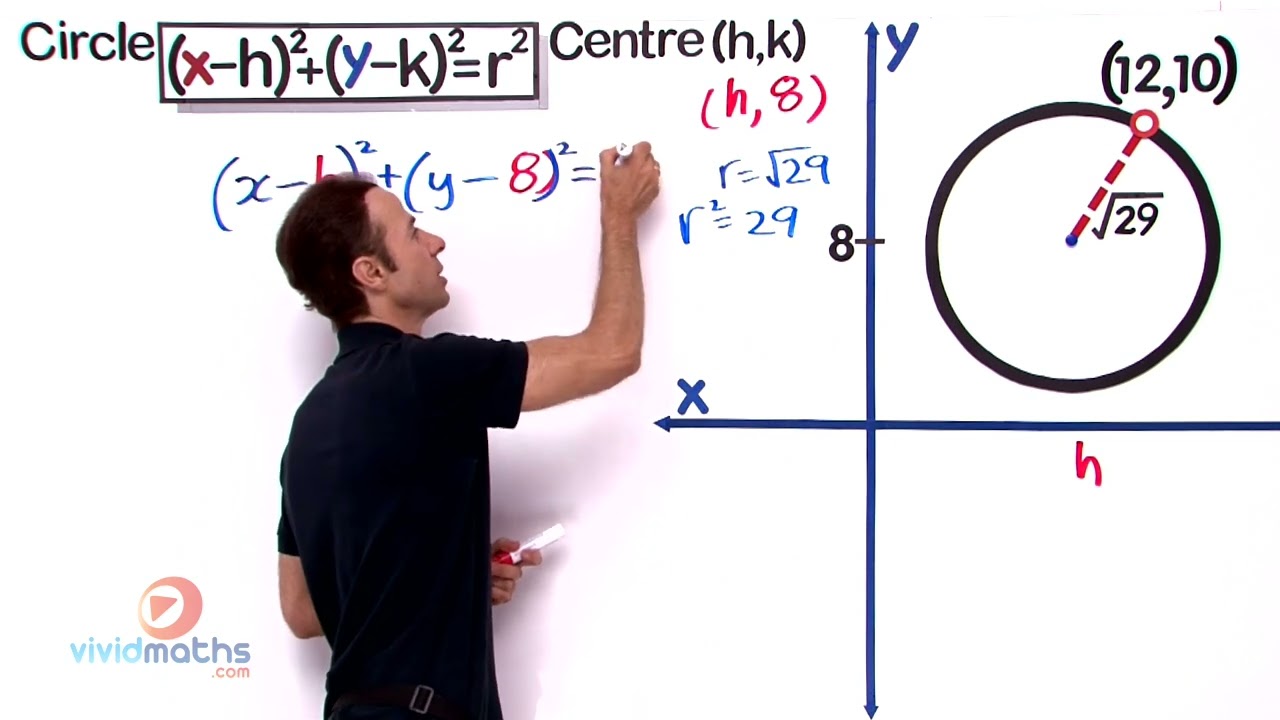 Circle (x-h)²+(y-k)²=r² Centre (h,k)
(h, 8)
(x-h)²+(y-8)²=
r=√29
r²=29
y
(12,10)
√29
8
x
h
vividmaths
.com